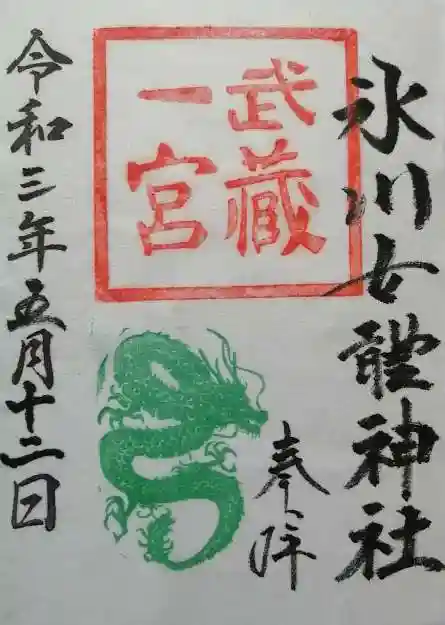 氷川女體神社
奉拝
武蔵
一宮
令和三年五月十二日